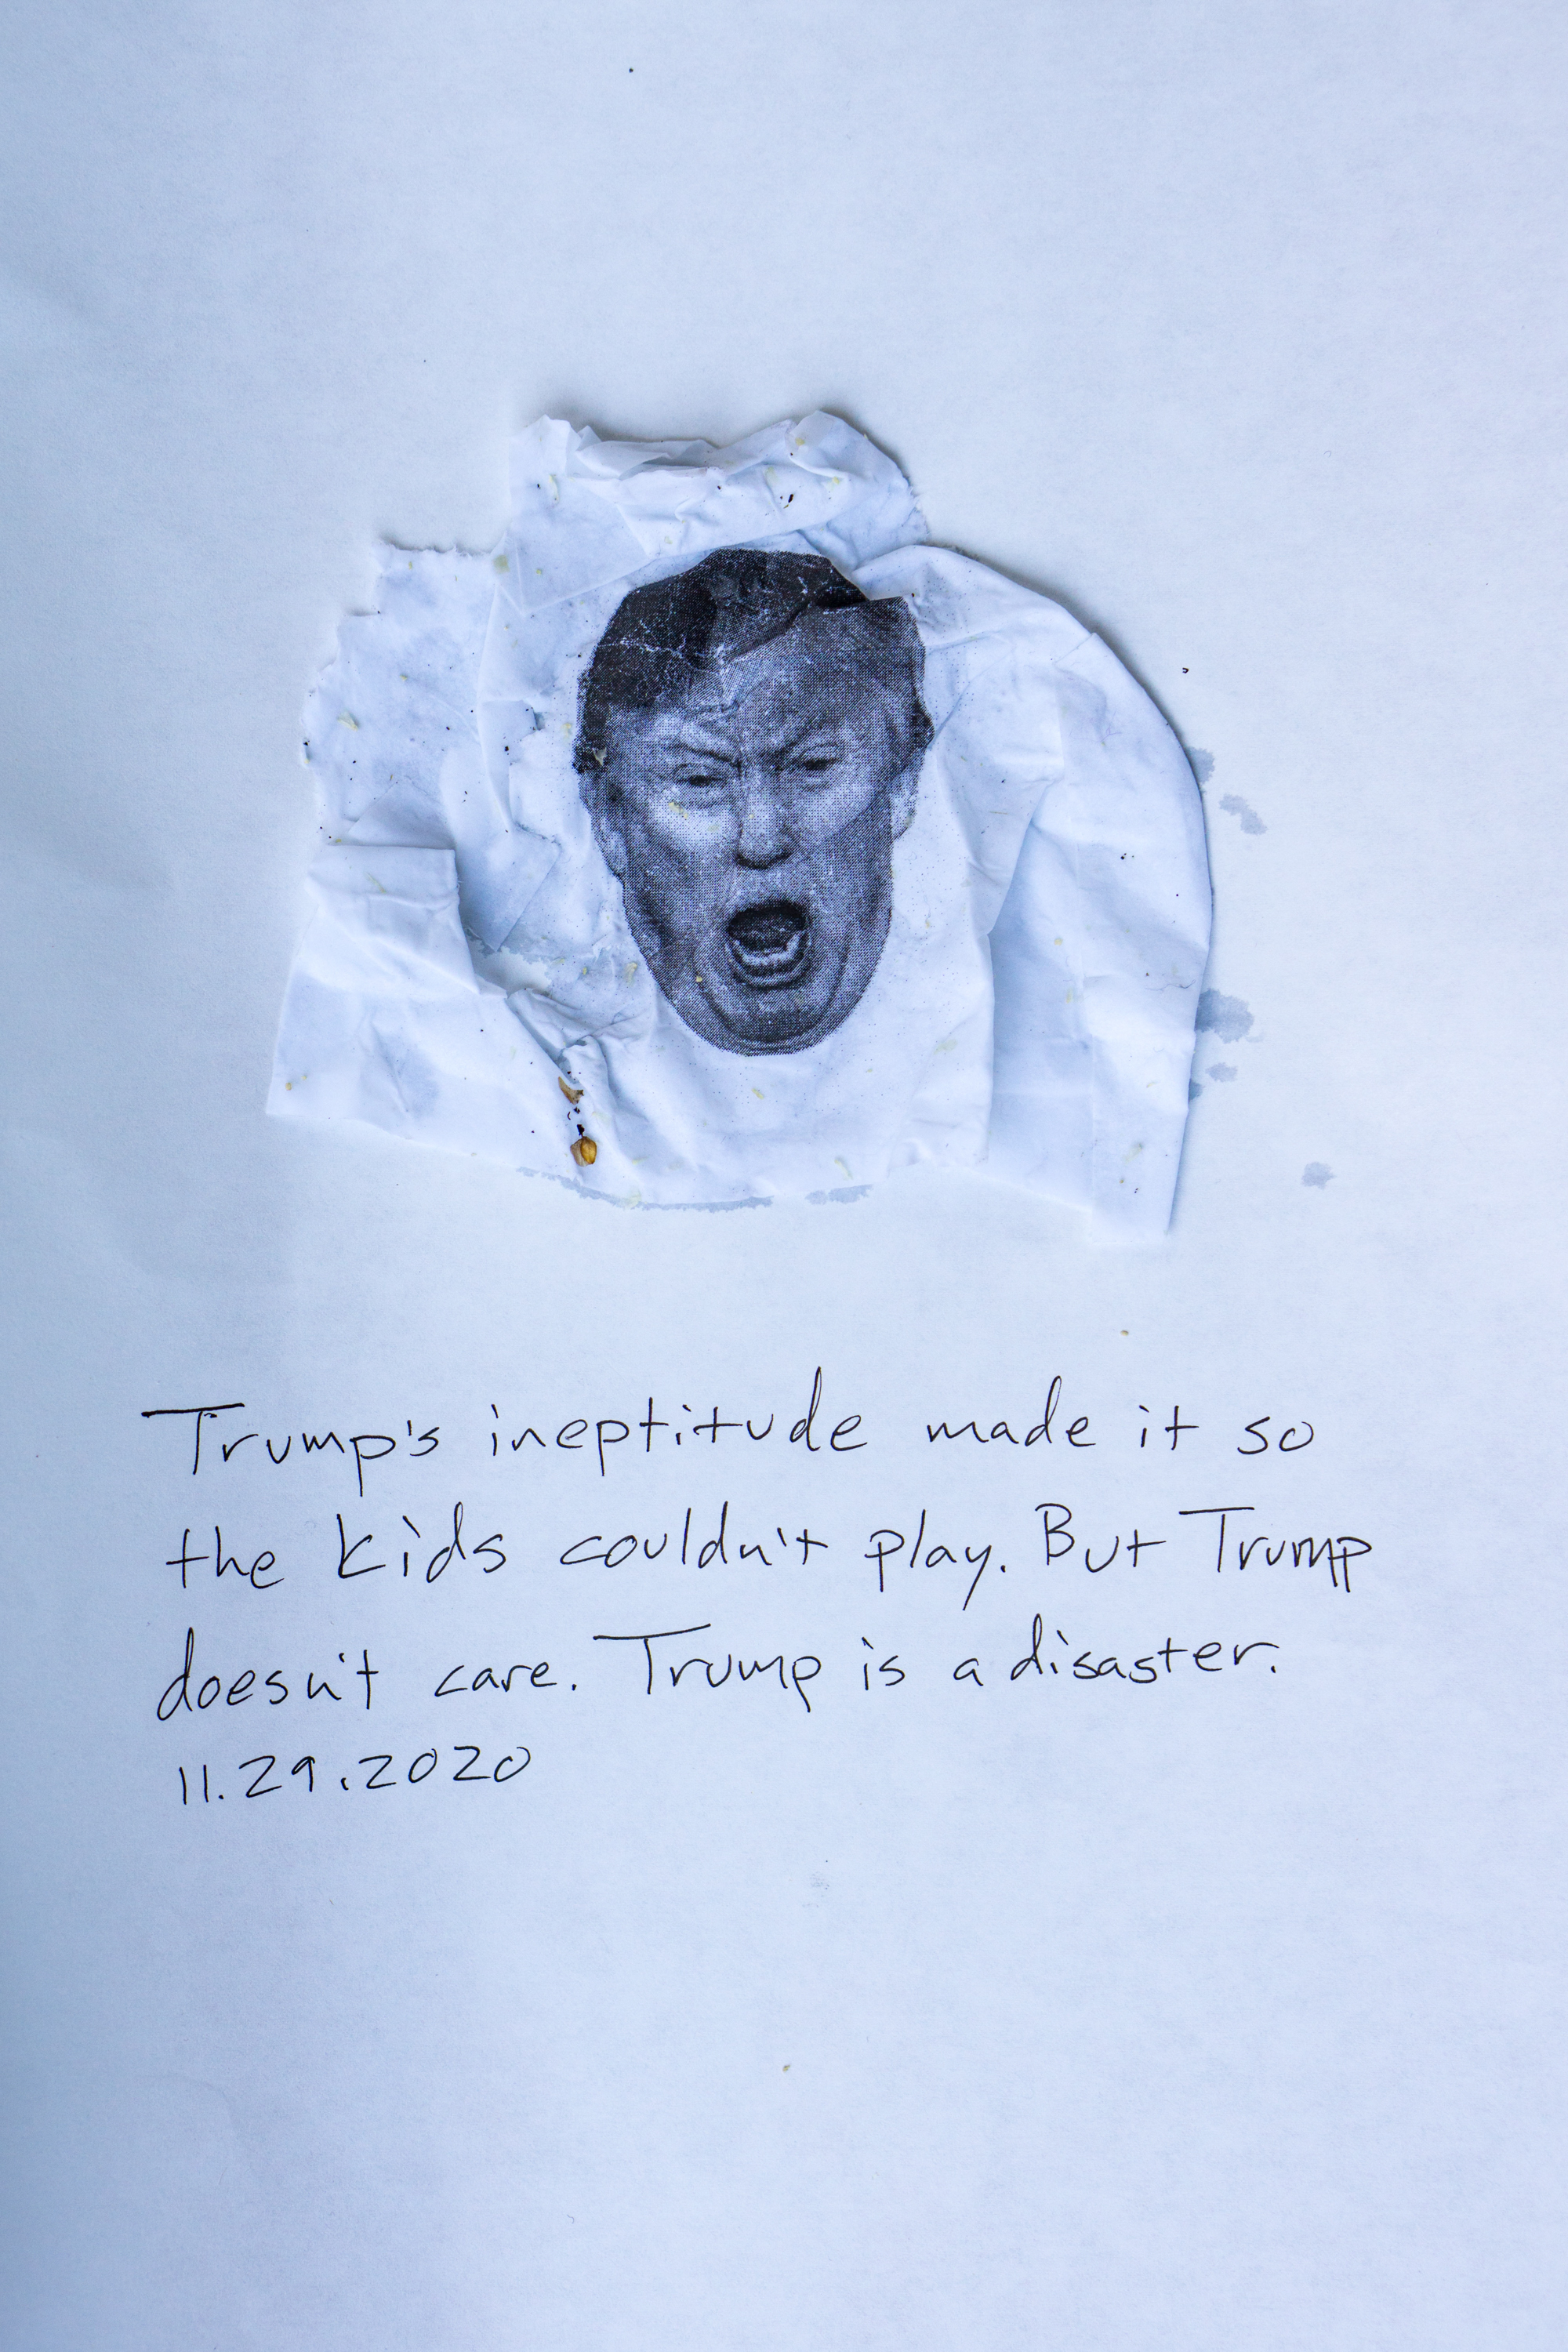 Trump's ineptitude made it so
the kids couldn't play. But Trump
doesn't care. Trump is a disaster.
11.29.2020